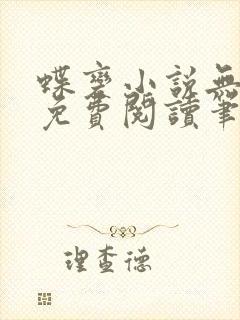 蝶變小說無
免費閱讀筆
理查德